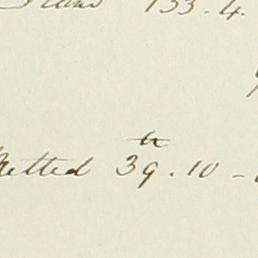 133.4.
tr
Netted 39.10-